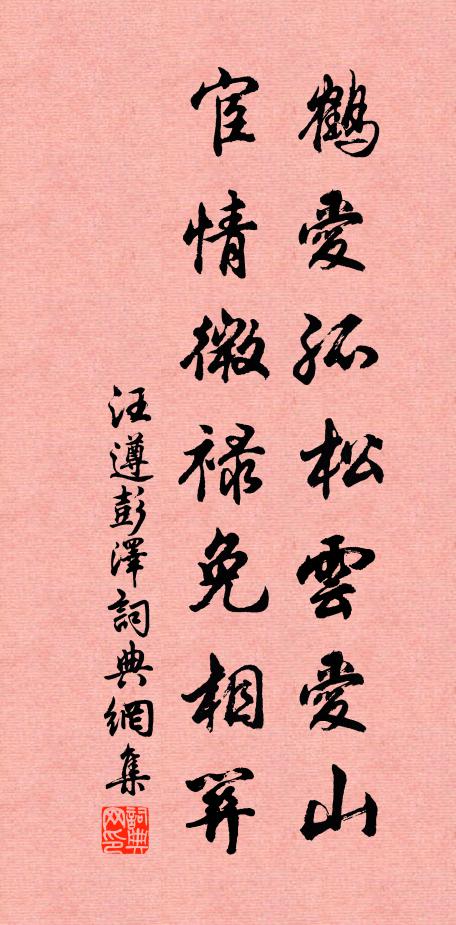 鶴愛孤松雲愛山
宦情微祿免相關
汪遵彭澤詞典網集
詞典
网印